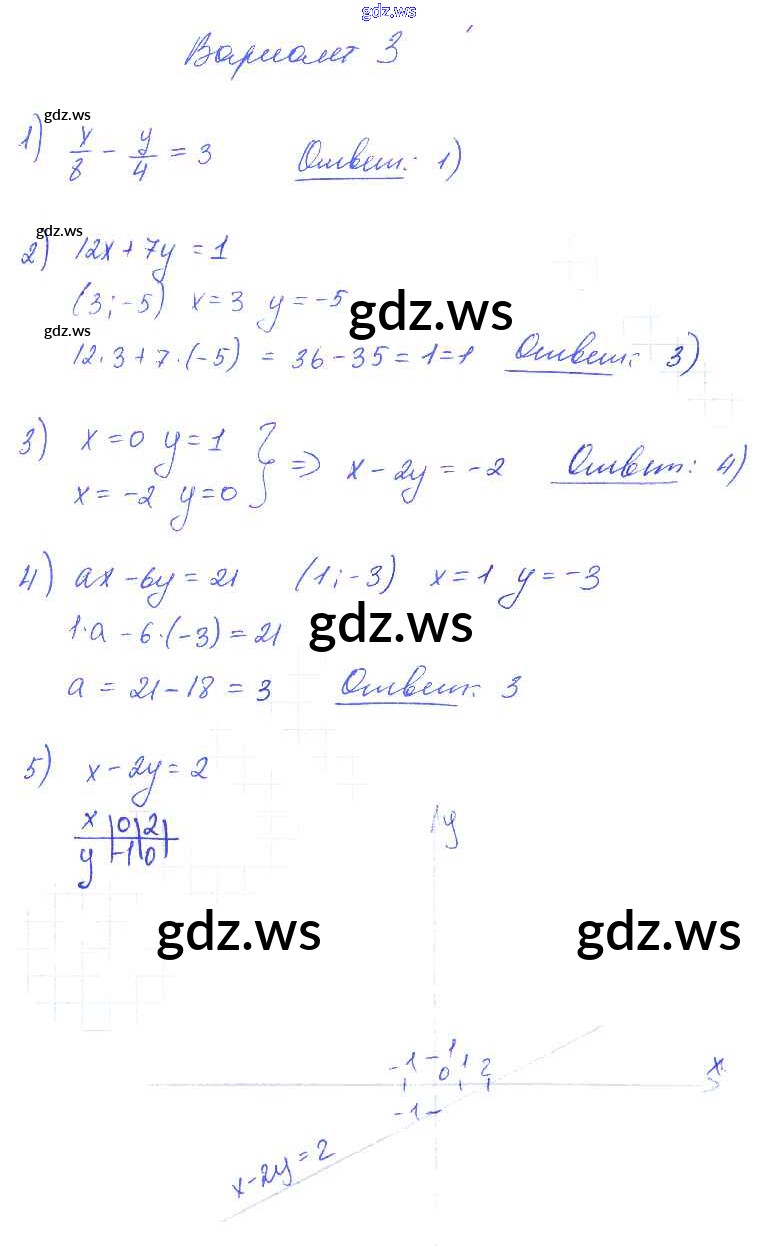 gdz.ws
Вариант 3
gdz.ws
1) x/8 - y/4 = 3 Ответ: 1)
gdz.ws
2) 12x + 7y = 1
(3; -5) x = 3 y = -5
gdz.ws
gdz.ws
12·3 + 7·(-5) = 36 - 35 = 1 = 1 Ответ: 3)
3) x = 0 y = 1
x = -2 y = 0 } => x - 2y = -2 Ответ: 4)
4) ax - 6y = 21 (1; -3) x = 1 y = -3
1·a - 6·(-3) = 21
gdz.ws
a = 21 - 18 = 3 Ответ: 3
5) x - 2y = 2
x | 0 | 2 |
y | -1 | 0 |
y
gdz.ws gdz.ws
-1 -1 0 1 2 x
-1
x - 2y = 2